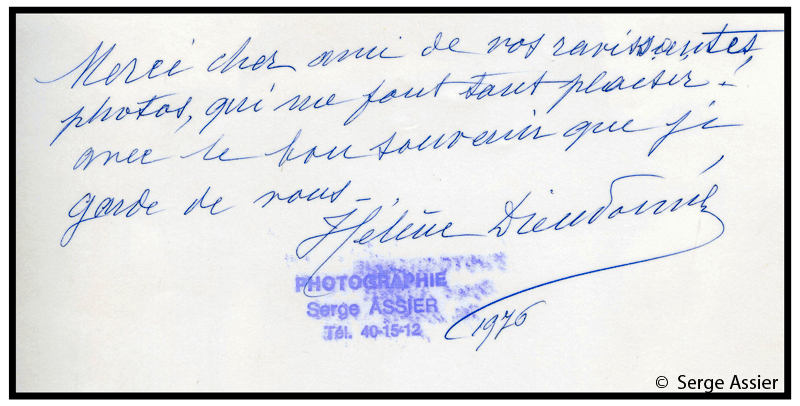 Merci cher ami de vos ravissantes
photos, qui me font tant plaisir !
avec le bon souvenir que je
garde de vous –
Hélène Dieudonné
PHOTOGRAPHIE
Serge ASSIER
Tél. 40-15-12
1976
© Serge Assier